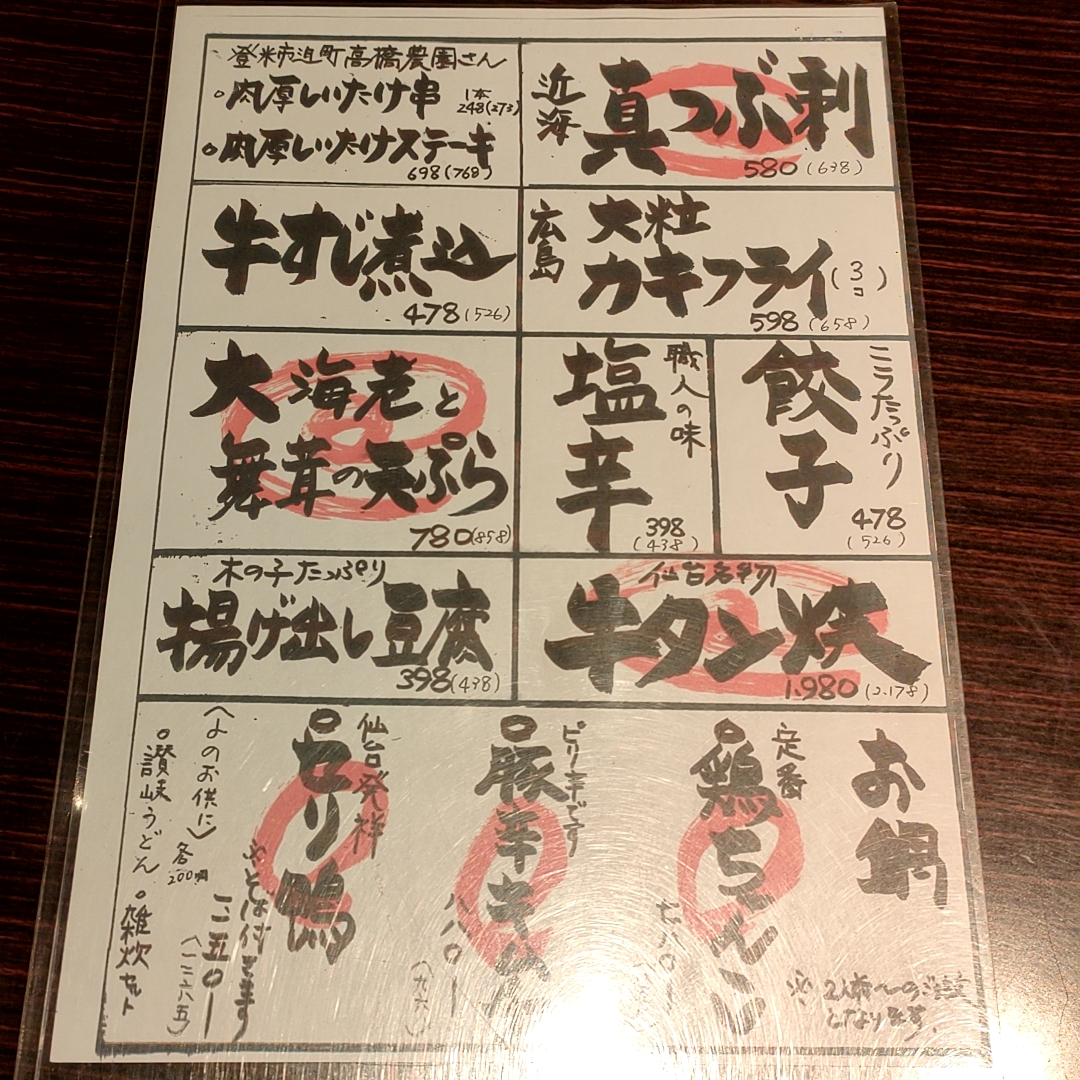 登米市迫町高橋農園さん
○肉厚しいたけ串 1本 248(273)
○肉厚しいたけステーキ
698(768)
近海
真つぶ刺
580(638)
牛すじ煮込
478(526)
広島
大粒
カキフライ(3コ)
598(658)
大海老と
舞茸の天ぷら
780(858)
職人の味
塩辛
398
(438)
ニラたっぷり
餃子
478
(526)
木の子たっぷり
揚げ出し豆腐
398(438)
仙台名物
牛タン焼
1.980(2.178)
お鍋
※2人前〜の注文
となります。
定番
○鶏ちゃんこ
ピリ辛です
○豚辛キムチ
八八〇ー
仙台発祥
○セリ鴨
※そば付きます
〈〆のお供に〉
各200円
○讃岐うどん
○雑炊セット